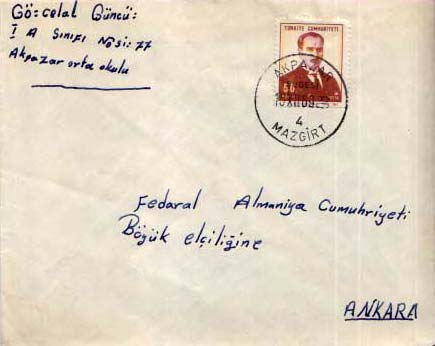 Gö: celal Güncü:
I A Sınıfı No si: 77
Akpazar orta okulu
TÜRKİYE CUMHURİYETİ
50
AKPAZAR
4
MAZGİRT
Fedaral Almaniya Cumhuriyeti
Böyük elçiliğine
ANKARA